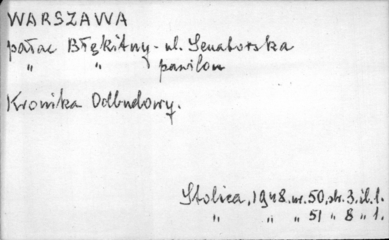 WARSZAWA
pałac Błękitny - ul. Senatorska
" " pawilon
Kronika Odbudowy.
Stolica, 1948. nr. 50, str. 3. il. 1.
" " " 51 " 8 " 1.